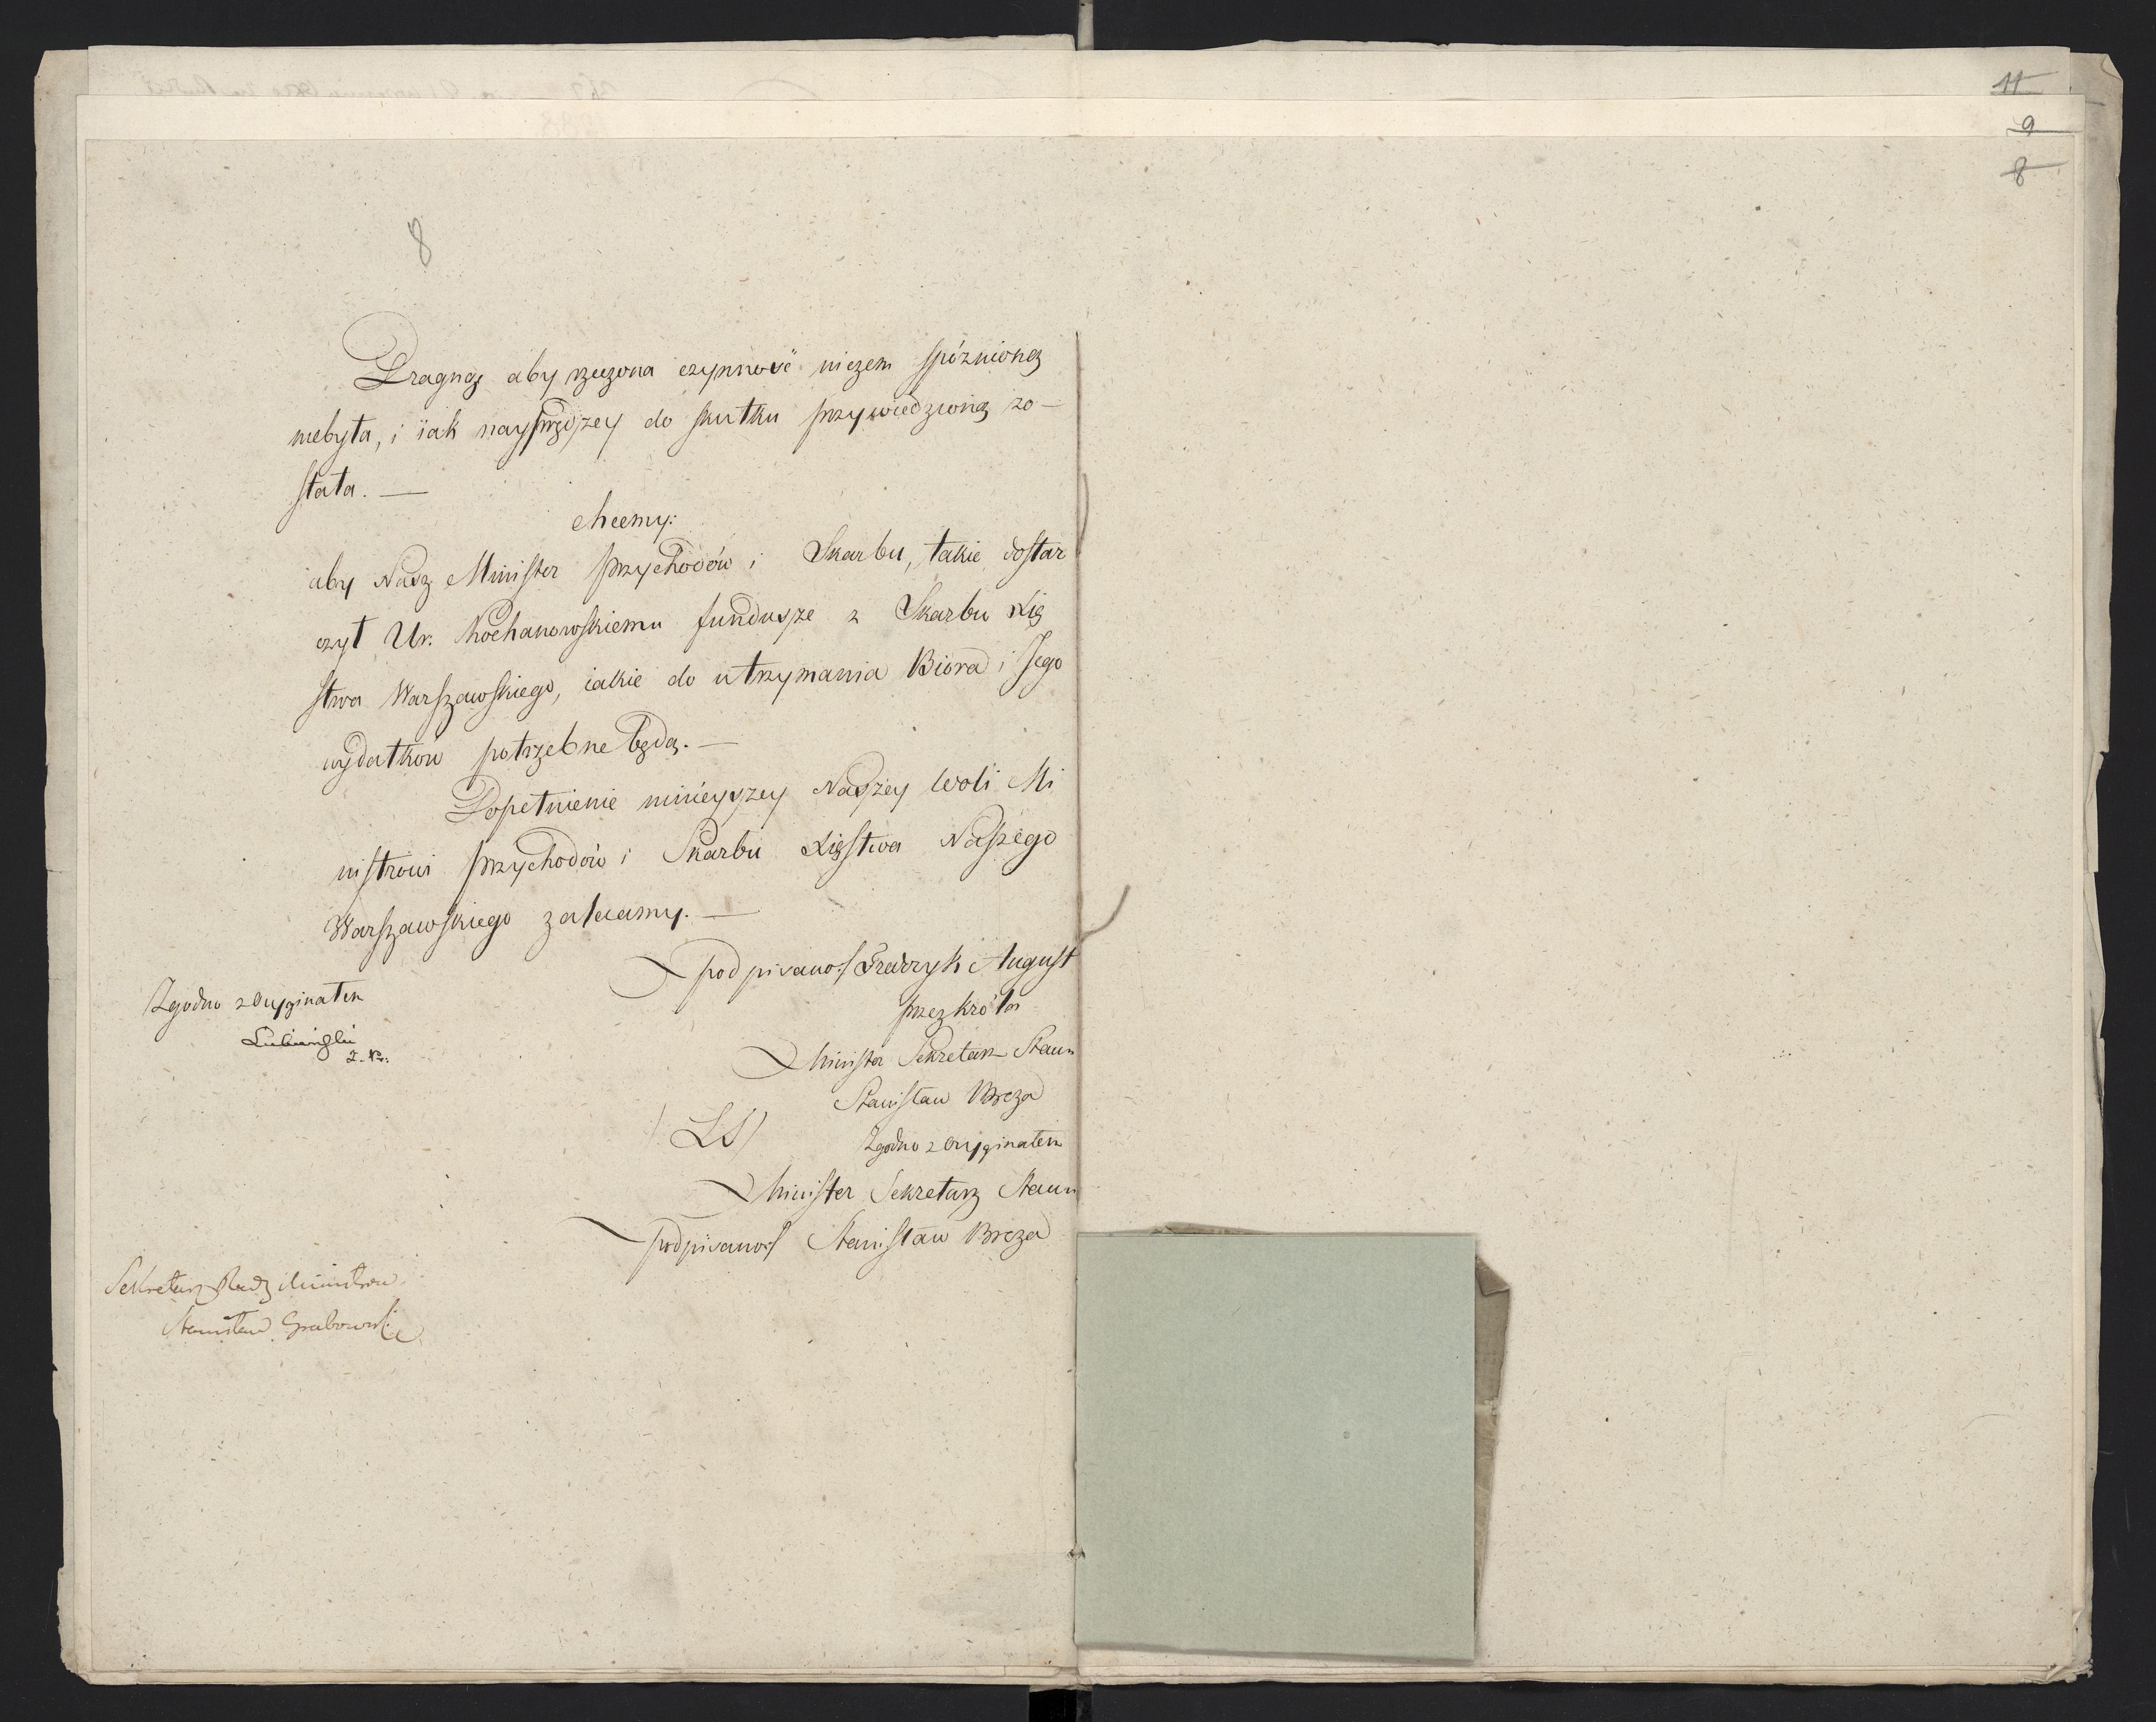 11
9
8
8
Pragnąc aby rzeczona czynność niczem spóźnioną
niebyła, i iak nayprędzey do skutku przywiedzioną zo-
stała. —
chcemy:
aby Nasz Minister Przychodów i Skarbu, takie dostar
czył Ur. Kochanowskiemu fundusze z Skarbu Xię
stwa Warszawskiego, iakie do utrzymania Biora i Jego
wydatków potrzebne będą. —
Dopełnienie ninieyszey Naszey woli Mi
nistrowi Przychodów i Skarbu Xięstwa Naszego
Warszawskiego zalecamy. —
podpisano:/ Fryderyk August
przez króla
Minister Sekretarz Stanu
Stanisław Breza
(LS)
Zgodno z Oryginałem
Minister Sekretarz Stanu
podpisano:/ Stanisław Breza
Zgodno z Oryginałem
Lubieński
Sekretarz Rady Ministrow
Stanisław Grabowski